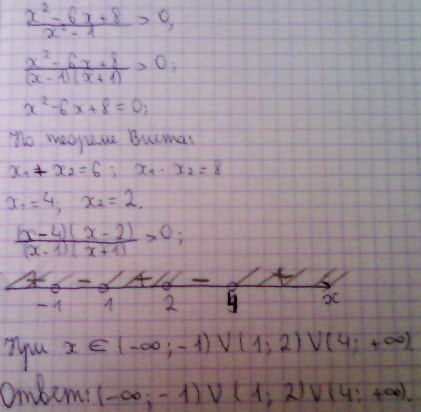 x² - 6x + 8 / x² - 1 > 0,
x² - 6x + 8 / (x - 1)(x + 1) > 0;
x² - 6x + 8 = 0;
По теореме Виета:
x₁ + x₂ = 6; x₁ · x₂ = 8
x₁ = 4; x₂ = 2.
(x - 4)(x - 2) / (x - 1)(x + 1) > 0;
+ - + - +
-1 1 2 4 x
При x ∈ (-∞; -1) V (1; 2) V (4; +∞).
Ответ: (-∞; -1) V (1; 2) V (4; +∞).